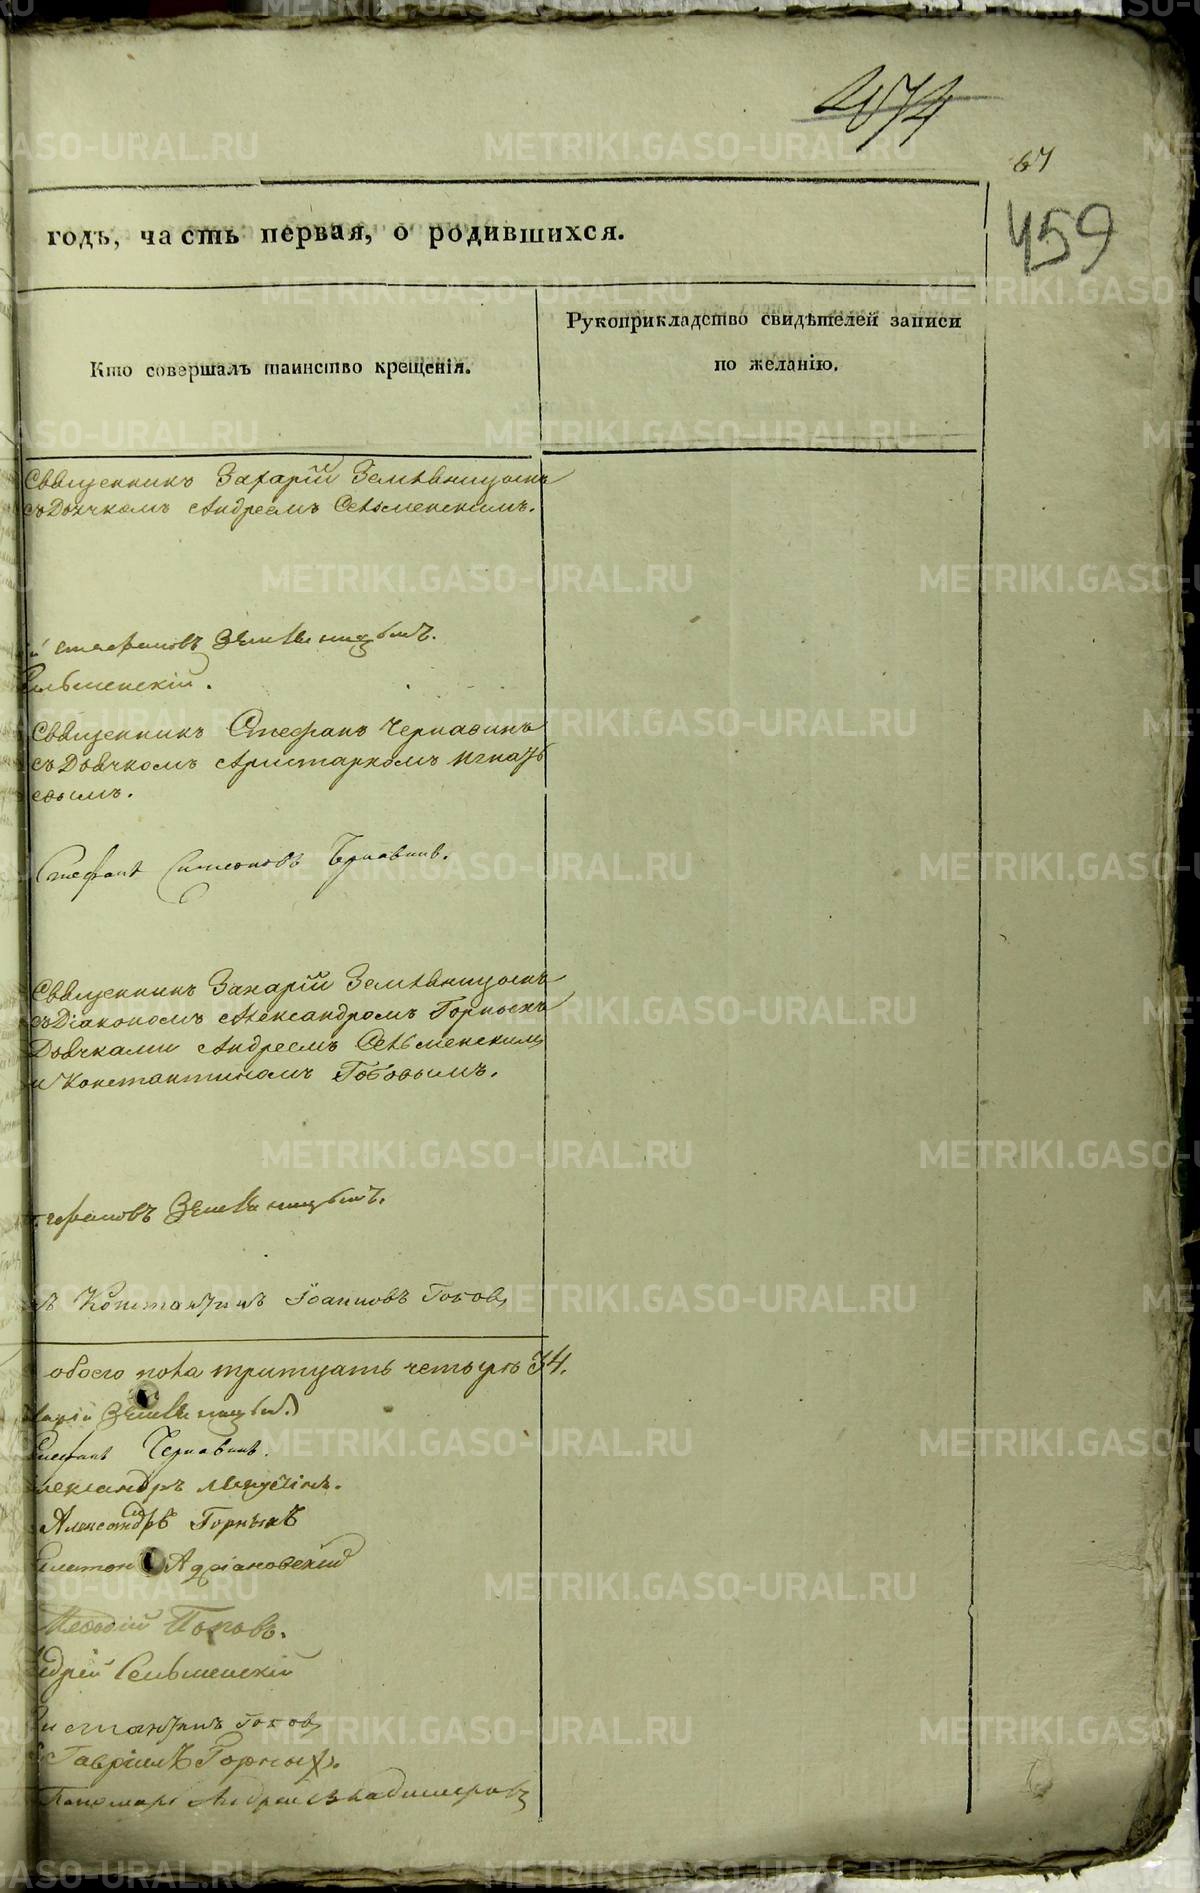 474
67
459
годъ, часть первая, о родившихся.
Кто совершалъ таинство крещенія.
Рукоприкладство свидѣтелей записи
по желанію.
Священникъ Захарій Земляницынъ
съ Дьячкомъ Андреемъ Сельменскимъ.
Стефановъ Земляницынъ.
Сельменскій.
Священникъ Стефанъ Чернавинъ
съ Дьячкомъ Аристархомъ Игнать
евымъ.
Стефанъ Симеоновъ Чернавинъ.
Священникъ Захарій Земляницынъ
съ Діакономъ Александромъ Горныхъ
Дьячками Андреемъ Сельменскимъ
и Константиномъ Гоковымъ.
Стефановъ Земляницынъ.
Константинъ Іоанновъ Гоковъ
обоего пола тритцать четыре 34.
Захарій Земляницынъ
Стефанъ Чернавинъ.
Александръ
Александръ Горныхъ
Платонъ Адріановскій
Меѳодій Поповъ.
Андрей Сельменскій
Константинъ Гоковъ
Гавріилъ Горныхъ.
Пономарь Андрей Владимеровъ
METRIKI.GASO-URAL.RU